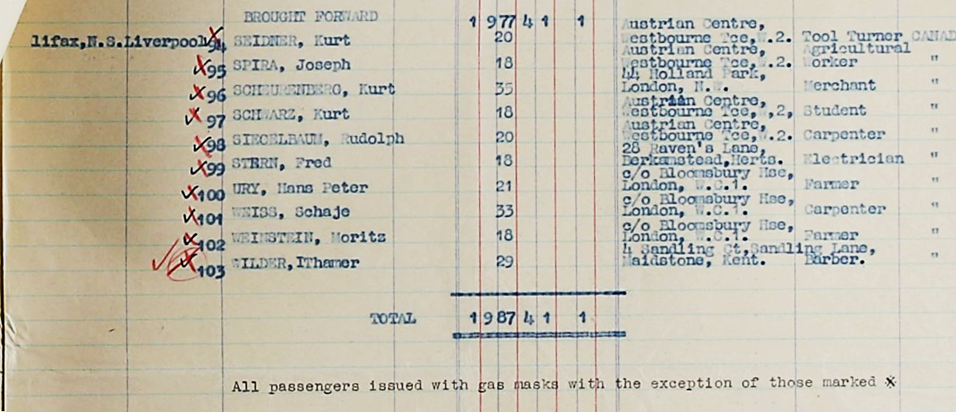 BROUGHT FORWARD 1 9 77 4 1 1 Austrian Centre,
lifax,N.S.Liverpool 94 SEIDNER, Kurt 20 Westbourne Tce,W.2. Tool Turner CANAD
Austrian Centre, Agricultural
95 SPIRA, Joseph 18 Westbourne Tce,W.2. Worker "
44 Holland Park,
96 SCHEURENBERG, Kurt 35 London, N.W. Merchant "
Austrian Centre,
97 SCHWARZ, Kurt 18 Westbourne Tce,W,2, Student "
Austrian Centre,
98 SIEGELBAUM, Rudolph 20 Westbourne Tce,W.2. Carpenter "
28 Raven's Lane,
99 STERN, Fred 18 Berkamstead,Herts. Electrician "
c/o Bloomsbury Hse,
100 URY, Hans Peter 21 London, W.C.1. Farmer "
c/o Bloomsbury Hse,
101 WEISS, Schaje 33 London, W.C.1. Carpenter "
c/o Bloomsbury Hse,
102 WEINSTEIN, Moritz 18 London, W.C.1. Farmer "
4 Sandling Ct,Sandling Lane,
103 WILDER,IThamer 29 Maidstone, Kent. Barber. "
TOTAL 1 9 87 4 1 1
All passengers issued with gas masks with the exception of those marked X